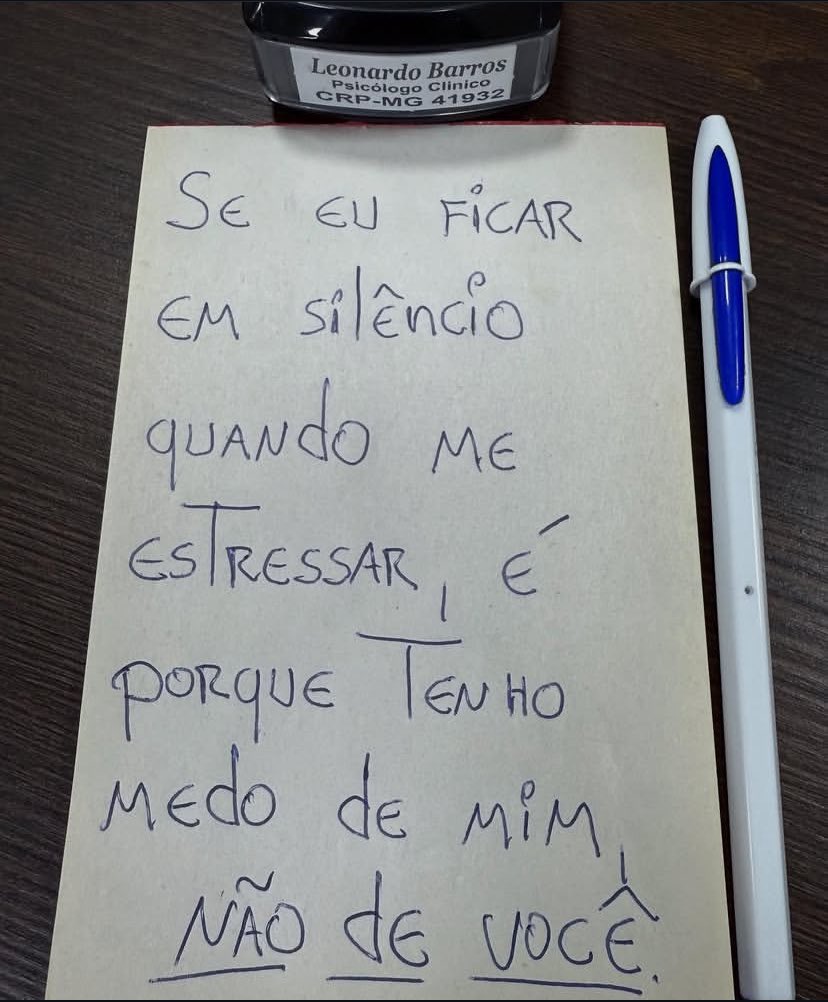 Leonardo Barros
Psicólogo Clínico
CRP-MG 41932
SE EU FiCAR
EM SilêNCiO
QUANdO ME
ESTRESSAR, É
PORQUE TENHO
MEdO dE MiM,
NÃO dE VOCÊ.